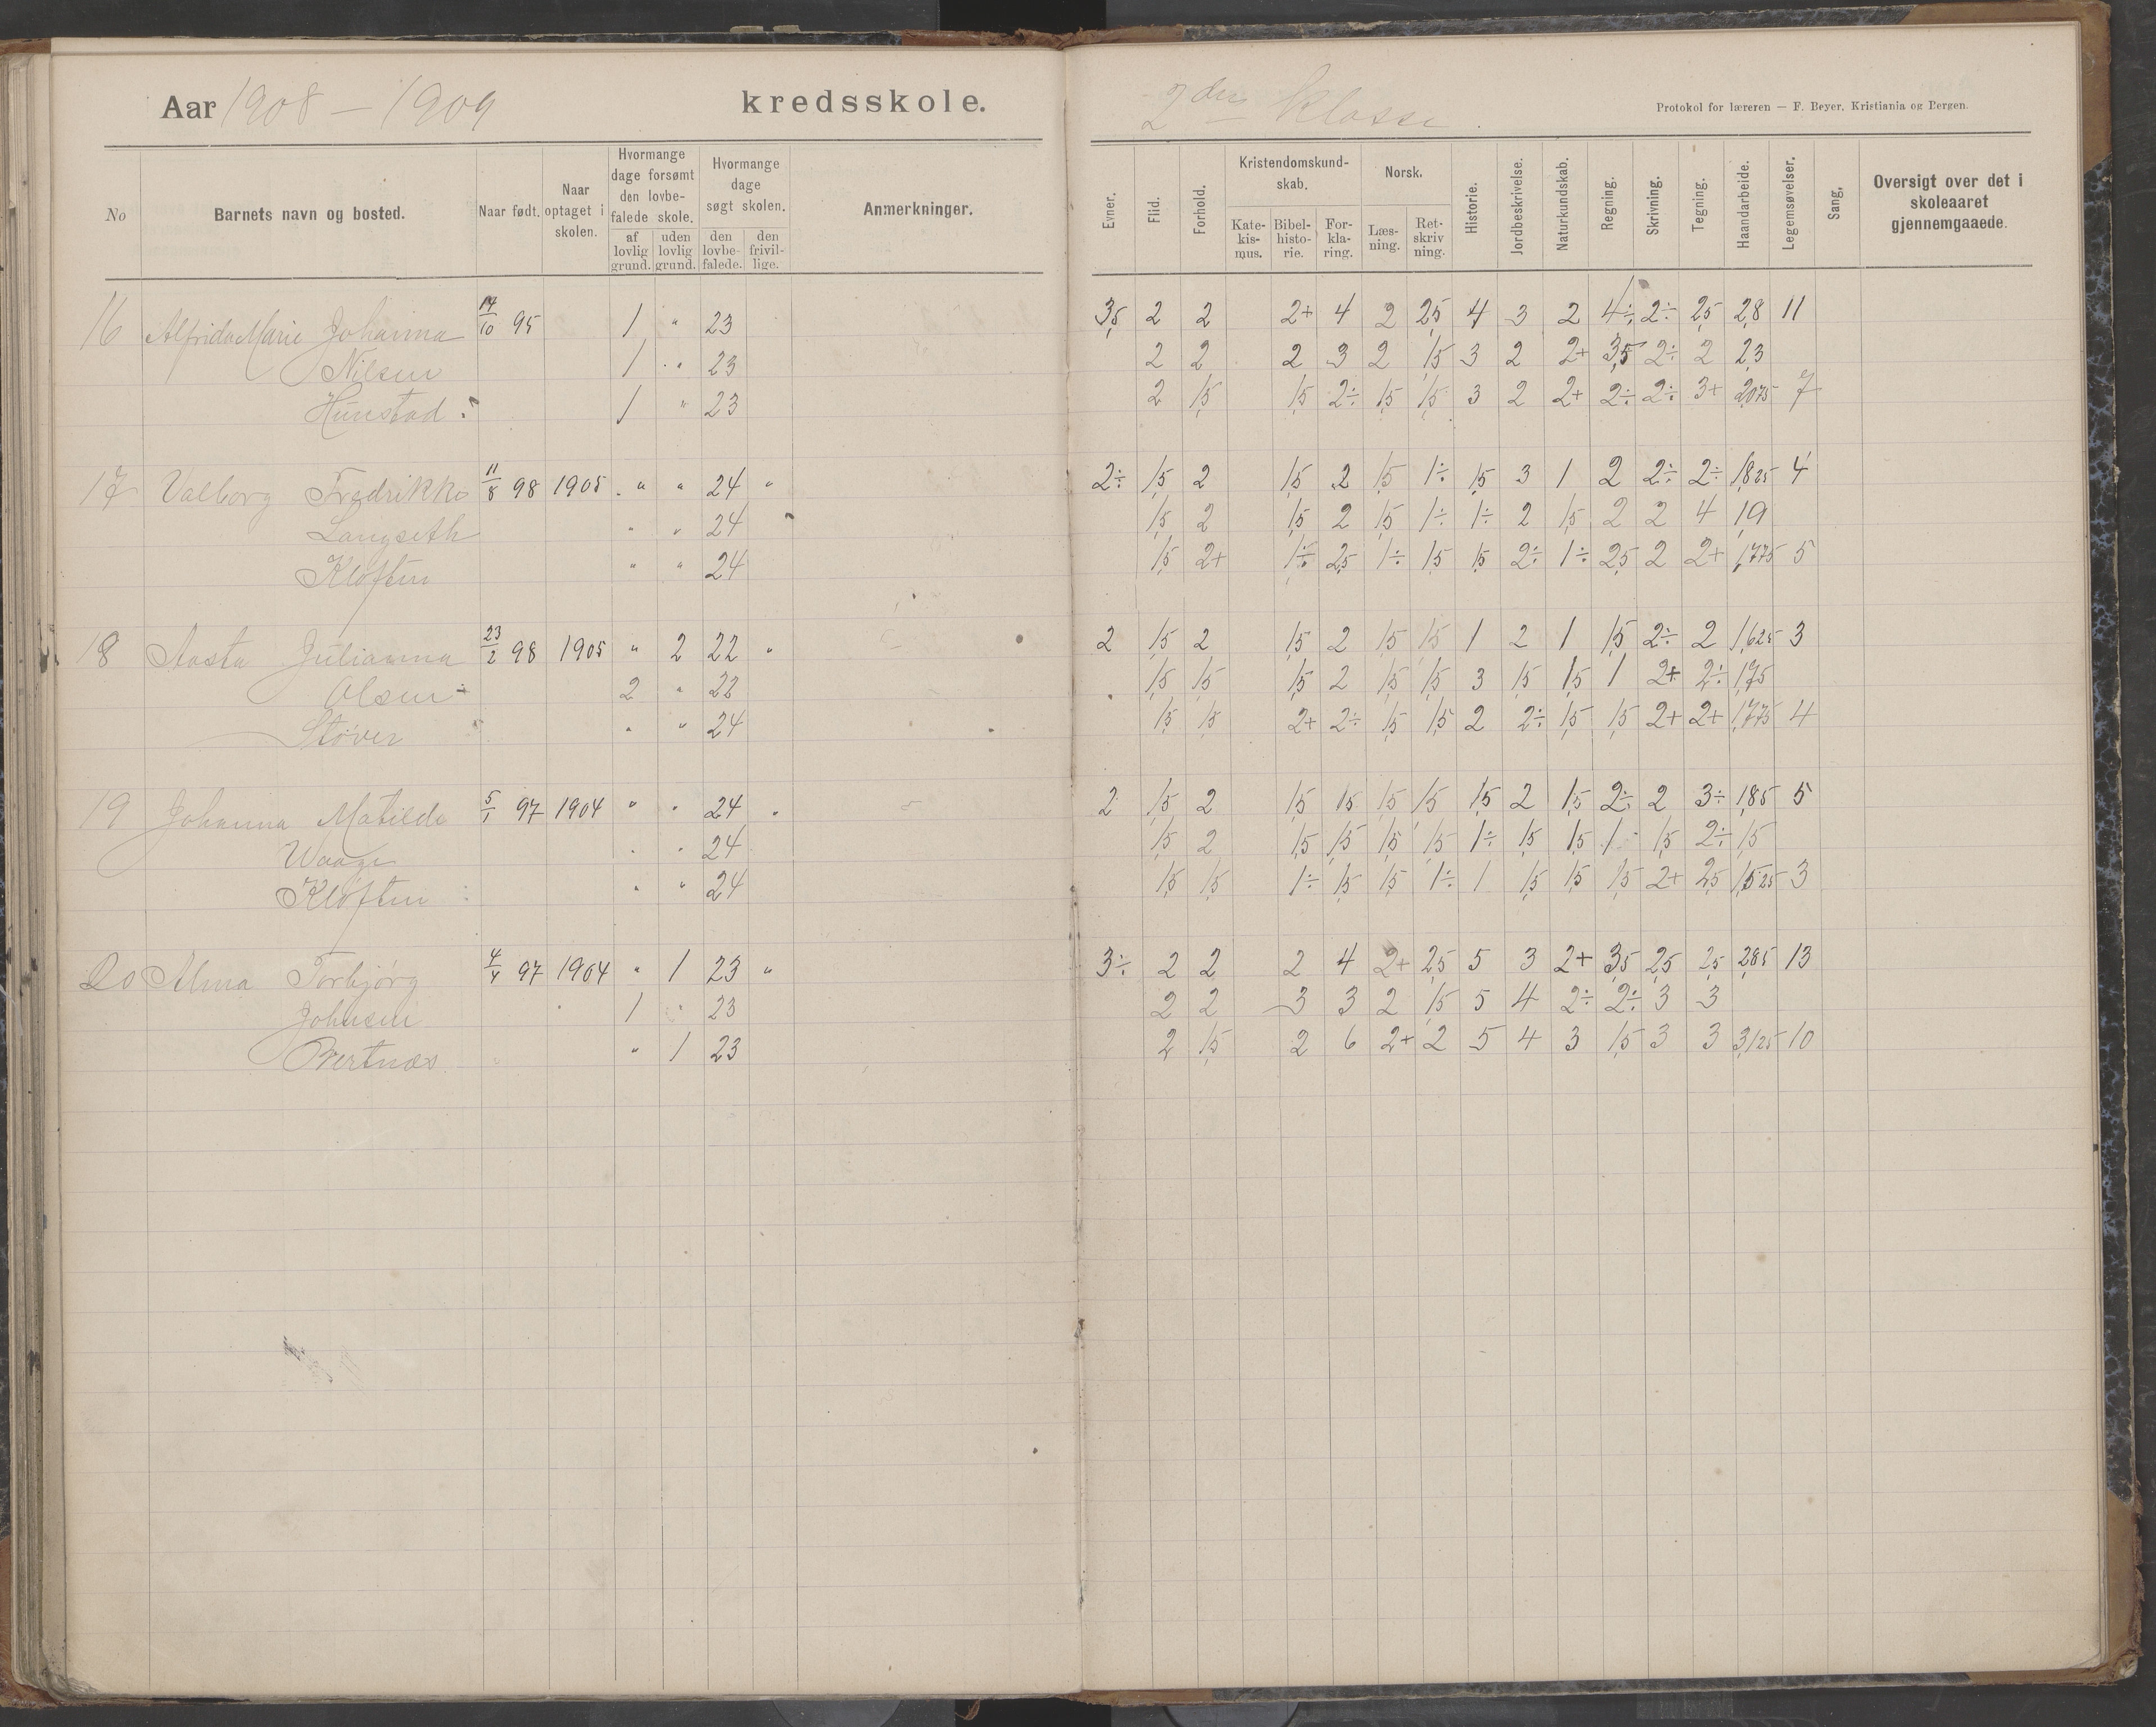 Aar 1908 – 1909 kredsskole.
2den Klasse.
Protokol for læreren — F. Beyer, Kristiania og Bergen.
No Barnets navn og bosted. Naar født. Naar optaget i skolen. Hvormange dage forsømt den lovbefalede skole. af lovlig grund. uden lovlig grund. Hvormange dage søgt skolen. den lovbefalede. den frivillige. Anmerkninger.
Evner. Flid. Forhold. Kristendomskundskab. Katekismus. Bibelhistorie. Forklaring. Norsk. Læsning. Retskrivning. Historie. Jordbeskrivelse. Naturkundskab. Regning. Skrivning. Tegning. Haandarbeide. Legemsøvelser. Sang, Oversigt over det i skoleaaret gjennemgaaede.
16 Alfrida Marie Johanna 14/10 95 1 " 23 3,5 2 2 2+ 4 2 2,5 4 3 2 4÷ 2÷ 2,5 2,8 11
Nilsen 1 " 23 2 2 2 3 2 1,5 3 2 2+ 3,5 2÷ 2 2,3
Hunstad 1 " 23 2 1,5 1,5 2÷ 1,5 1,5 3 2 2+ 2÷ 2÷ 3+ 2,075 7
17 Valborg Fredrikke 11/8 98 1905 " " 24 " 2÷ 1,5 2 1,5 2 1,5 1÷ 1,5 3 1 2 2÷ 2÷ 1,825 4
Langseth " " 24 1,5 2 1,5 2 1,5 1÷ 1÷ 2 1,5 2 2 4 1,9
Kløften " " 24 1,5 2+ 1÷ 2,5 1÷ 1,5 1,5 2÷ 1÷ 2,5 2 2+ 1,775 5
18 Aasta Julianna 23/2 98 1905 " 2 22 " 2 1,5 2 1,5 2 1,5 1,5 1 2 1 1,5 2÷ 2 1,625 3
Olsen 2 " 22 1,5 1,5 1,5 2 1,5 1,5 3 1,5 1,5 1 2+ 2÷ 1,75
Støver " " 24 1,5 1,5 2+ 2÷ 1,5 1,5 2 2÷ 1,5 1,5 2+ 2+ 1,775 4
19 Johanna Matilde 5/1 97 1904 " " 24 " 2 1,5 2 1,5 1,5 1,5 1,5 1,5 2 1,5 2÷ 2 3÷ 1,85 5
Waage " " 24 1,5 2 1,5 1,5 1,5 1,5 1÷ 1,5 1,5 1 1,5 2÷ 1,5
Kløften " " 24 1,5 1,5 1÷ 1,5 1,5 1÷ 1 1,5 1,5 1,5 2+ 2,5 1,525 3
20 Alma Torbjørg 4/4 97 1904 " 1 23 " 3÷ 2 2 2 4 2+ 2,5 5 3 2+ 3,5 2,5 2,5 2,85 13
Johnsen 1 " 23 2 2 3 3 2 1,5 5 4 2÷ 2÷ 3 3
Bertnæs " 1 23 2 1,5 2 6 2+ 2 5 4 3 1,5 3 3 3,125 10